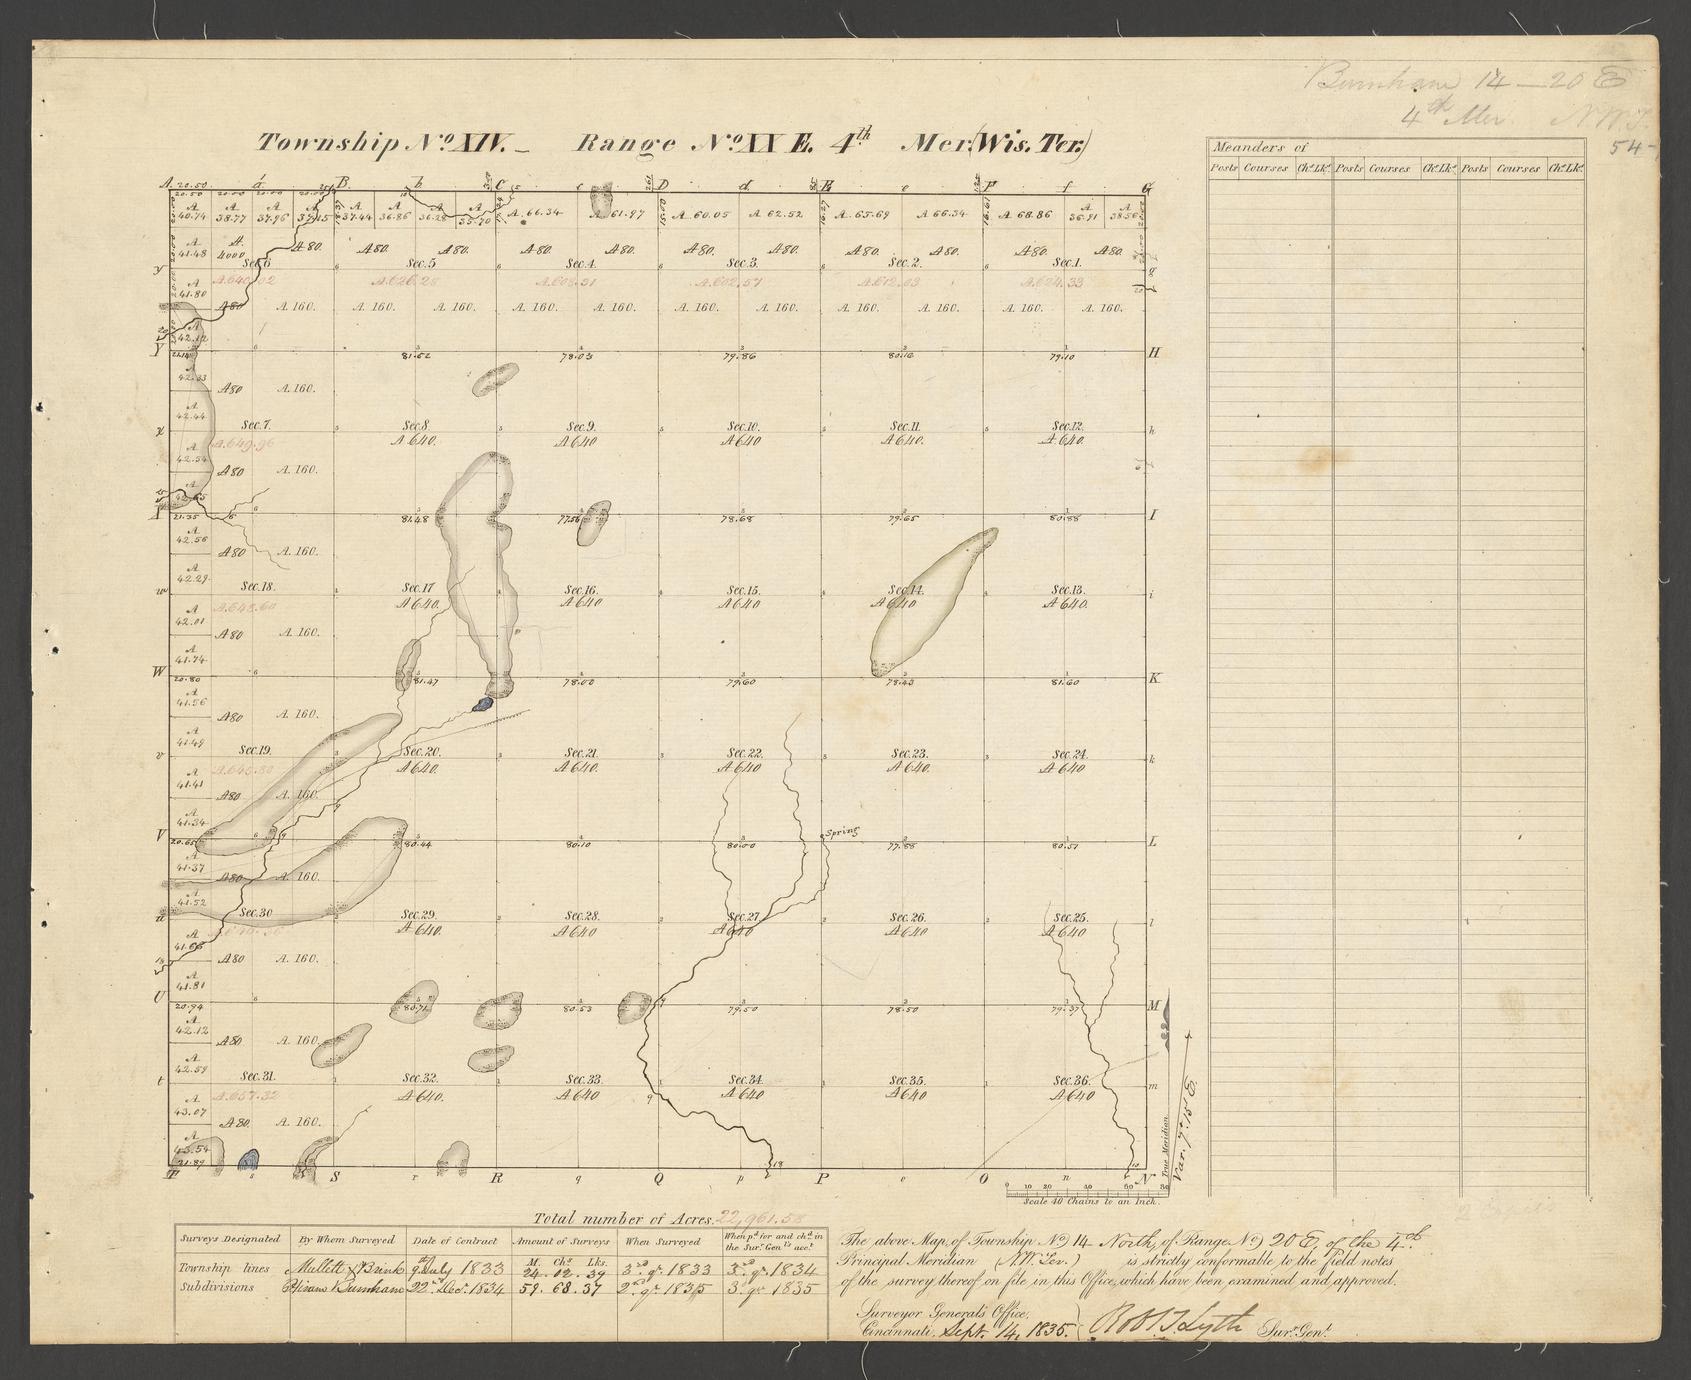 Burnham 14 — 20 E
4th Mer. N.W.T.
54
Township No. XIV. — Range No. XX E. 4th Mer. (Wis. Ter.)
Meanders of
Posts Courses Chs. Lk. Posts Courses Chs. Lk. Posts Courses Chs. Lk.
A 20.50 a B b C c D d E e F f G
20.50 20.00 20.00 20.00
A 40.74 A 38.77 A 37.96 A 37.15 A 37.44 A 36.86 A 36.28 A 35.70 A. 66.34 A 61.97 A 60.05 A 62.52 A. 65.69 A 66.34 A 68.86 A 36.91 A 38.56
A 41.48 A. 4000 A 80. A 80. A 80. A 80. A 80. A 80. A 80. A 80. A 80. A 80. A 80.
y Sec. 6 Sec. 5 Sec. 4. Sec. 3. Sec. 2. Sec. 1. g
A 41.80 A. 640.02 A. 626.28 A. 608.31 A. 602.57 A. 612.03 A. 624.33
A 80 A. 160. A. 160. A. 160. A. 160. A. 160. A. 160. A. 160. A. 160. A. 160. A. 160. A. 160.
A 42.12
Y 81.52 78.03 79.86 80.16 79.10 H
A 42.33 A 80 A. 160.
A 42.44
x Sec. 7. Sec. 8. Sec. 9. Sec. 10. Sec. 11. Sec. 12. h
A. 649.96 A 640. A 640 A 640 A 640. A 640.
A 42.54 A 80 A. 160.
A 42.65
I 21.35 81.48 77.56 78.68 79.65 80.88 I
A 42.56 A 80 A. 160.
A 42.29
w Sec. 18. Sec. 17 Sec. 16. Sec. 15. Sec. 14. Sec. 13. i
A. 648.60 A 640. A 640 A 640 A 640 A 640.
A 42.01 A 80 A. 160.
A 41.74
W 20.80 81.47 78.00 79.60 78.43 81.60 K
A 41.56 A 80 A. 160.
A 41.49
v Sec. 19. Sec. 20. Sec. 21. Sec. 22. Sec. 23. Sec. 24. k
A. 645.80 A 640. A 640. A 640 A 640. A 640
A 41.41 A 80 A. 160.
A 41.34
Spring
V 20.65 80.44 80.10 80.00 77.88 80.57 L
A 41.37 A 80 A. 160.
A 41.52
u Sec. 30 Sec. 29. Sec. 28. Sec. 27. Sec. 26. Sec. 25. l
A 640. A 640 A 640 A 640 A 640
A 41.66 A 80 A. 160.
A 41.81
U 20.94 80.71 80.53 79.50 78.50 79.37 M
A 42.12 A 80 A. 160.
A 42.59
t Sec. 31. Sec. 32. Sec. 33. Sec. 34. Sec. 35. Sec. 36. m
A. 657.32 A 640. A 640 A 640 A 640 A 640
A 43.07 A 80. A. 160.
A 43.54
21.89
T s S r R q Q p P o O n N
True Meridian
Var. 7° 15' E.
0 10 20 40 60 80
Scale 40 Chains to an Inch.
Total number of Acres. 22,961.58
Surveys Designated By Whom Surveyed Date of Contract Amount of Surveys When Surveyed When pd. for and chd. in the Surr. Genl's acct.
M. Chs. Lks.
Township lines Mullett & Brink 9th July 1833 24. 02. 39 3rd qr. 1833 3rd qr. 1834
Subdivisions Hiram Burnham 22nd Decr. 1834 59. 68. 37 2nd qr. 1835 3d qr. 1835
The above Map, of Township No) 14 North, of Range No) 20 E, of the 4th.
Principal Meridian (N.W. Ter.) is strictly conformable to the field notes
of the survey thereof on file in this Office, which have been examined and approved.
Surveyor General's Office,
Cincinnati, Sept. 14, 1835. Robt. T. Lytle Surr. Genl.